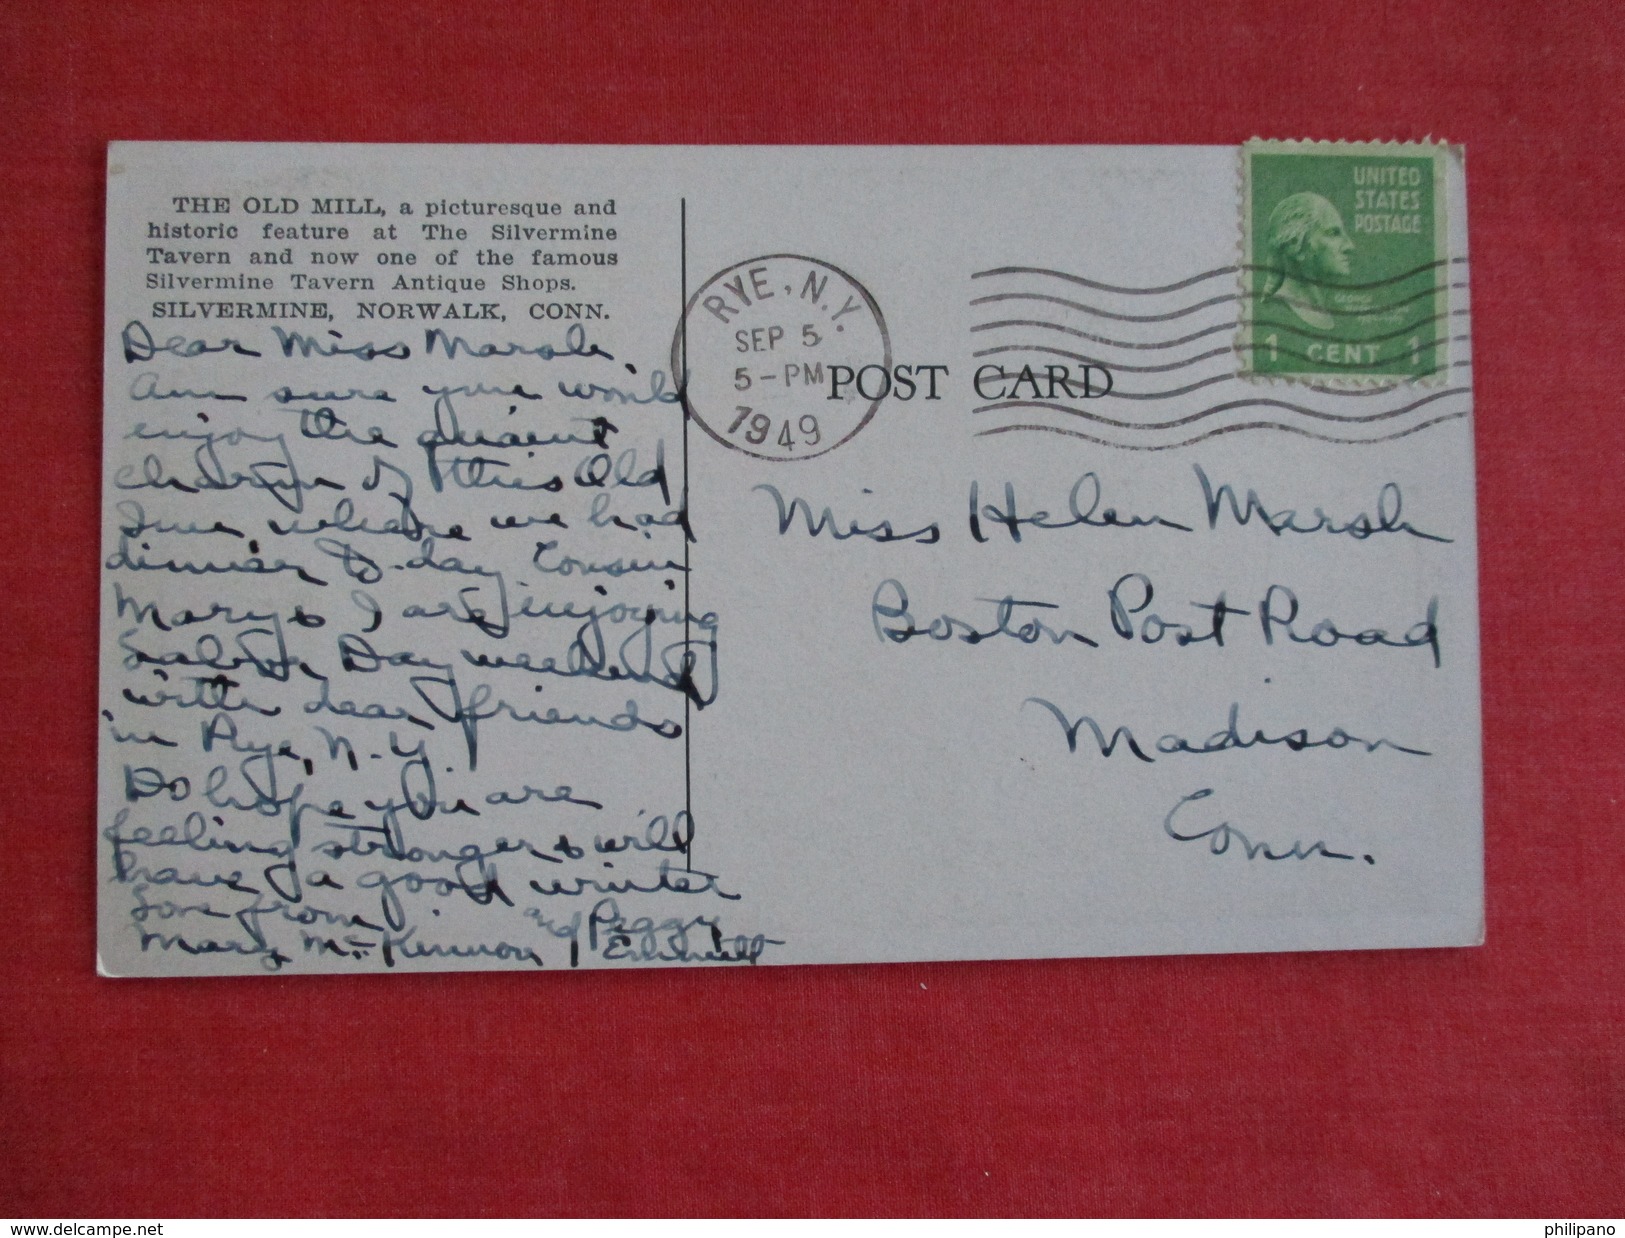 THE OLD MILL, a picturesque and
historic feature at The Silvermine
Tavern and now one of the famous
Silvermine Tavern Antique Shops.
SILVERMINE, NORWALK, CONN.
Dear Miss Marsh,
Am sure you would
enjoy the quaint
charm of this Old
Inn, where we had
dinner to-day. Cousin
Mary & I are enjoying
Labor Day weekend
with dear friends
in Rye, N.Y.
Do hope you are
feeling stronger & will
have a good winter
Love from
Mary McKinnon and Peggy
Emmett
RYE, N.Y.
SEP 5
5-PM
1949
POST CARD
UNITED
STATES
POSTAGE
GEORGE
1 CENT 1
Miss Helen Marsh
Boston Post Road
Madison
Conn.
www.delcampe.net
philipano